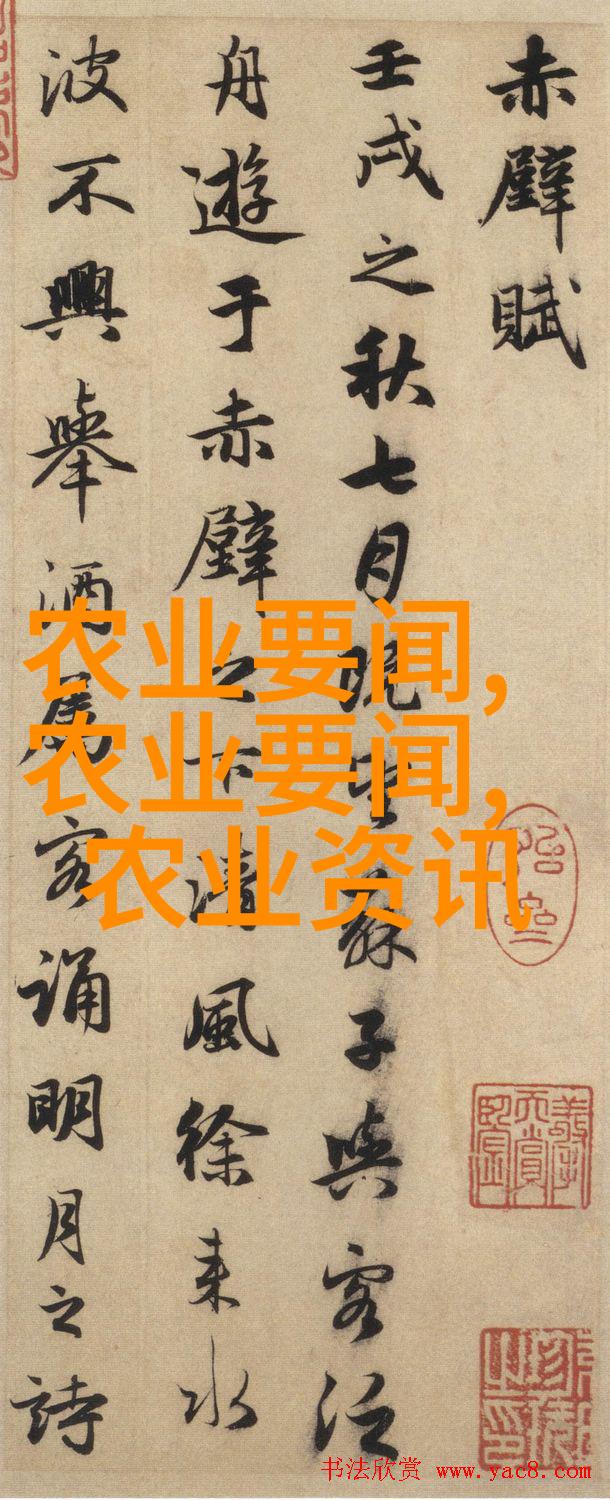 赤壁賦
壬戌之秋七月既望蘇子與客泛
舟遊于赤壁之下清風徐来水
波不興舉酒屬客誦明月之詩
农业要闻,
农业要闻,
农业资讯
书法欣赏 www.yac8.com